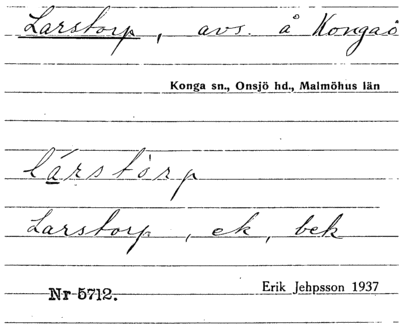 Larstorp, avs. å Kongaö
Konga sn., Onsjö hd., Malmöhus län
lárstòrp
Larstorp, ek, bek
Nr 5712.
Erik Jehpsson 1937